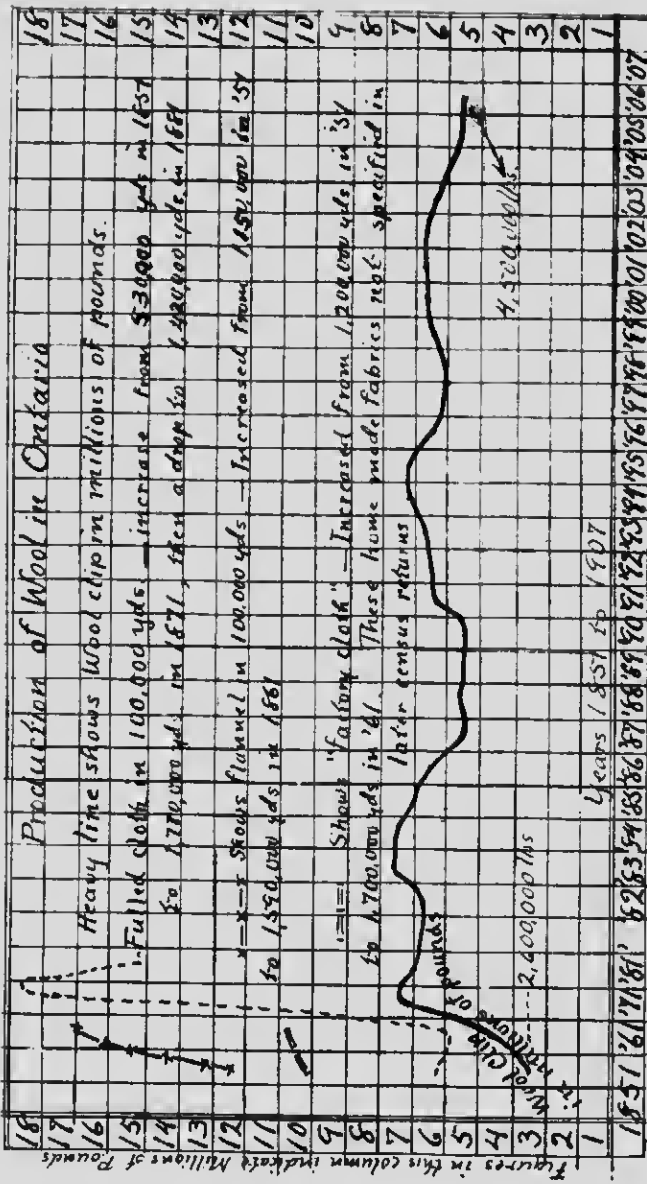 Production of Wool in Ontario
Heavy line shows Wool clip in millions of pounds.
Fulled cloth in 100,000 yds. — increase from 530,000 yds in 1851
to 1,770,000 yds. in 1871, then a drop to 1,420,000 yds. in 1881
x—x—x Shows flannel in 100.000 yds — Increased from 1,150,000 in '51
to 1,590,000 yds in 1861
Shows "factory cloth" — Increased from 1,200,000 yds in '51
to 1,700,000 yds in '61. These home made fabrics not specified in
later census returns
Wool Clip
in millions of pounds
2,600,000 lbs
4,500,000 lbs.
Years 1851 to 1907
Figures in this column indicate Millions of Pounds
18
17
16
15
14
13
12
11
10
9
8
7
6
5
4
3
2
1
18
17
16
15
14
13
12
11
10
9
8
7
6
5
4
3
2
1
1851 '61 '71 '81 '82 '83 '84 '85 '86 '87 '88 '89 '90 '91 '92 '93 '94 '95 '96 '97 '98 '99 '00 '01 '02 '03 '04 '05 '06 '07